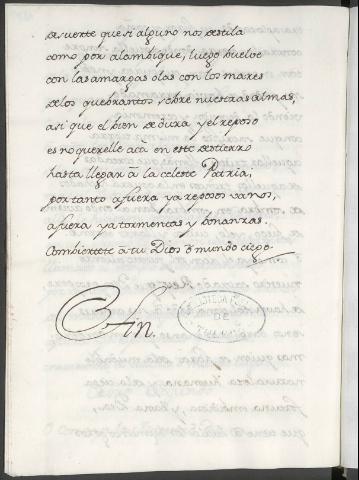 de suerte que si alguno nos destila
como por alambique, luego buelve
con las amargas olas con los mares
de los quebrantos, sobre nuestras almas,
asi que el bien de dura y el reposo
es no querelle acà en este destierro
hasta llegar à la celeste Patria;
por tanto afuera ya reposos vanos,
afuera ya tormentas y bonanzas.
Combiertete à tu Dios ò mundo ciego.
Fin.
BIBLIOTECA
DE